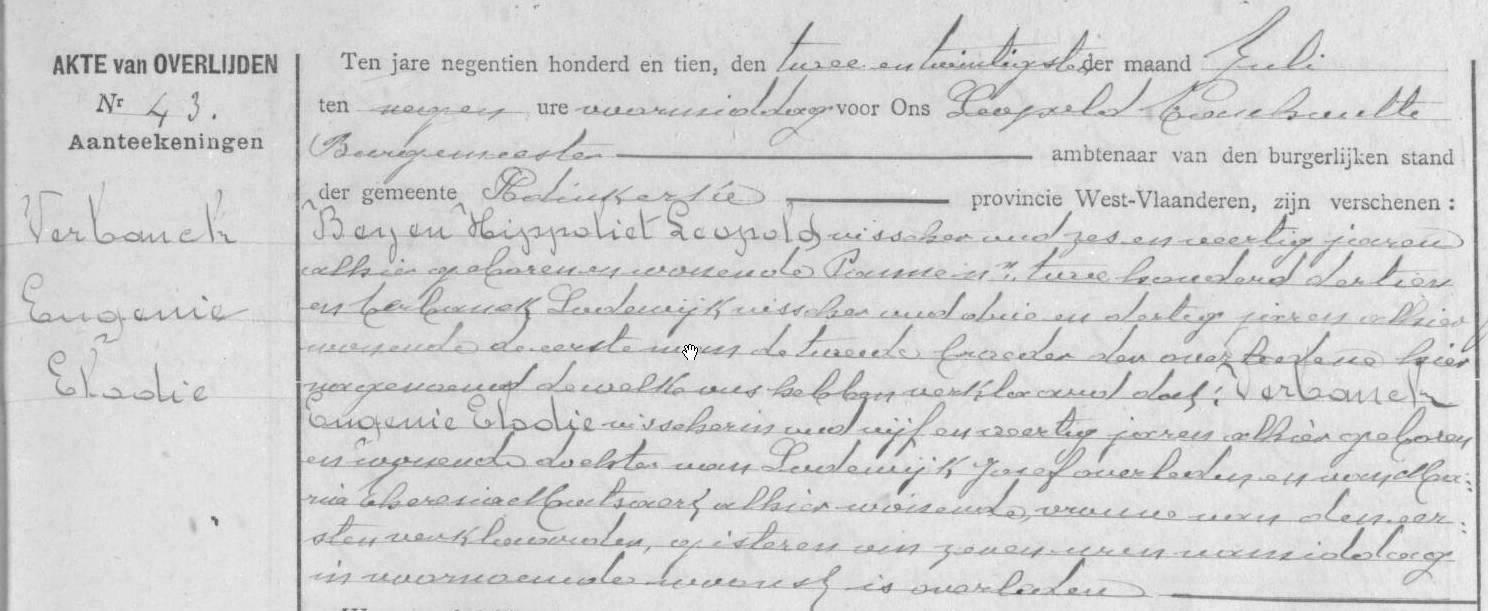 AKTE van OVERLIJDEN
Nr 43.
Aanteekeningen
Verbanck
Eugenie
Elodie
Ten jare negentien honderd en tien, den twee en twintigsten der maand Juli
ten negen ure voormiddag voor Ons Leopold
Burgemeester ambtenaar van den burgerlijken stand
der gemeente Adinkerke provincie West-Vlaanderen, zijn verschenen :
Beyen Hippoliet Leopold, visscher oud zes en veertig jaren
alhier geboren en wonende Panne in nr. twee honderd dertien
en Verbanck Lodewijk visscher oud drie en dertig jaren alhier
wonende de eerste man de tweede broeder der overledene hier
nagenoemd dewelke ons hebben verklaard dat : Verbanck
Eugenie Elodie visscherin oud vijf en veertig jaren alhier geboren
en wonende dochter van Lodewijk Josef overleden en van Ma:
ria Theresia alhier wonende, vrouw van den eer:
sten verklaarder, gisteren om zeven uren namiddag
in voornoemde woonst is overleden